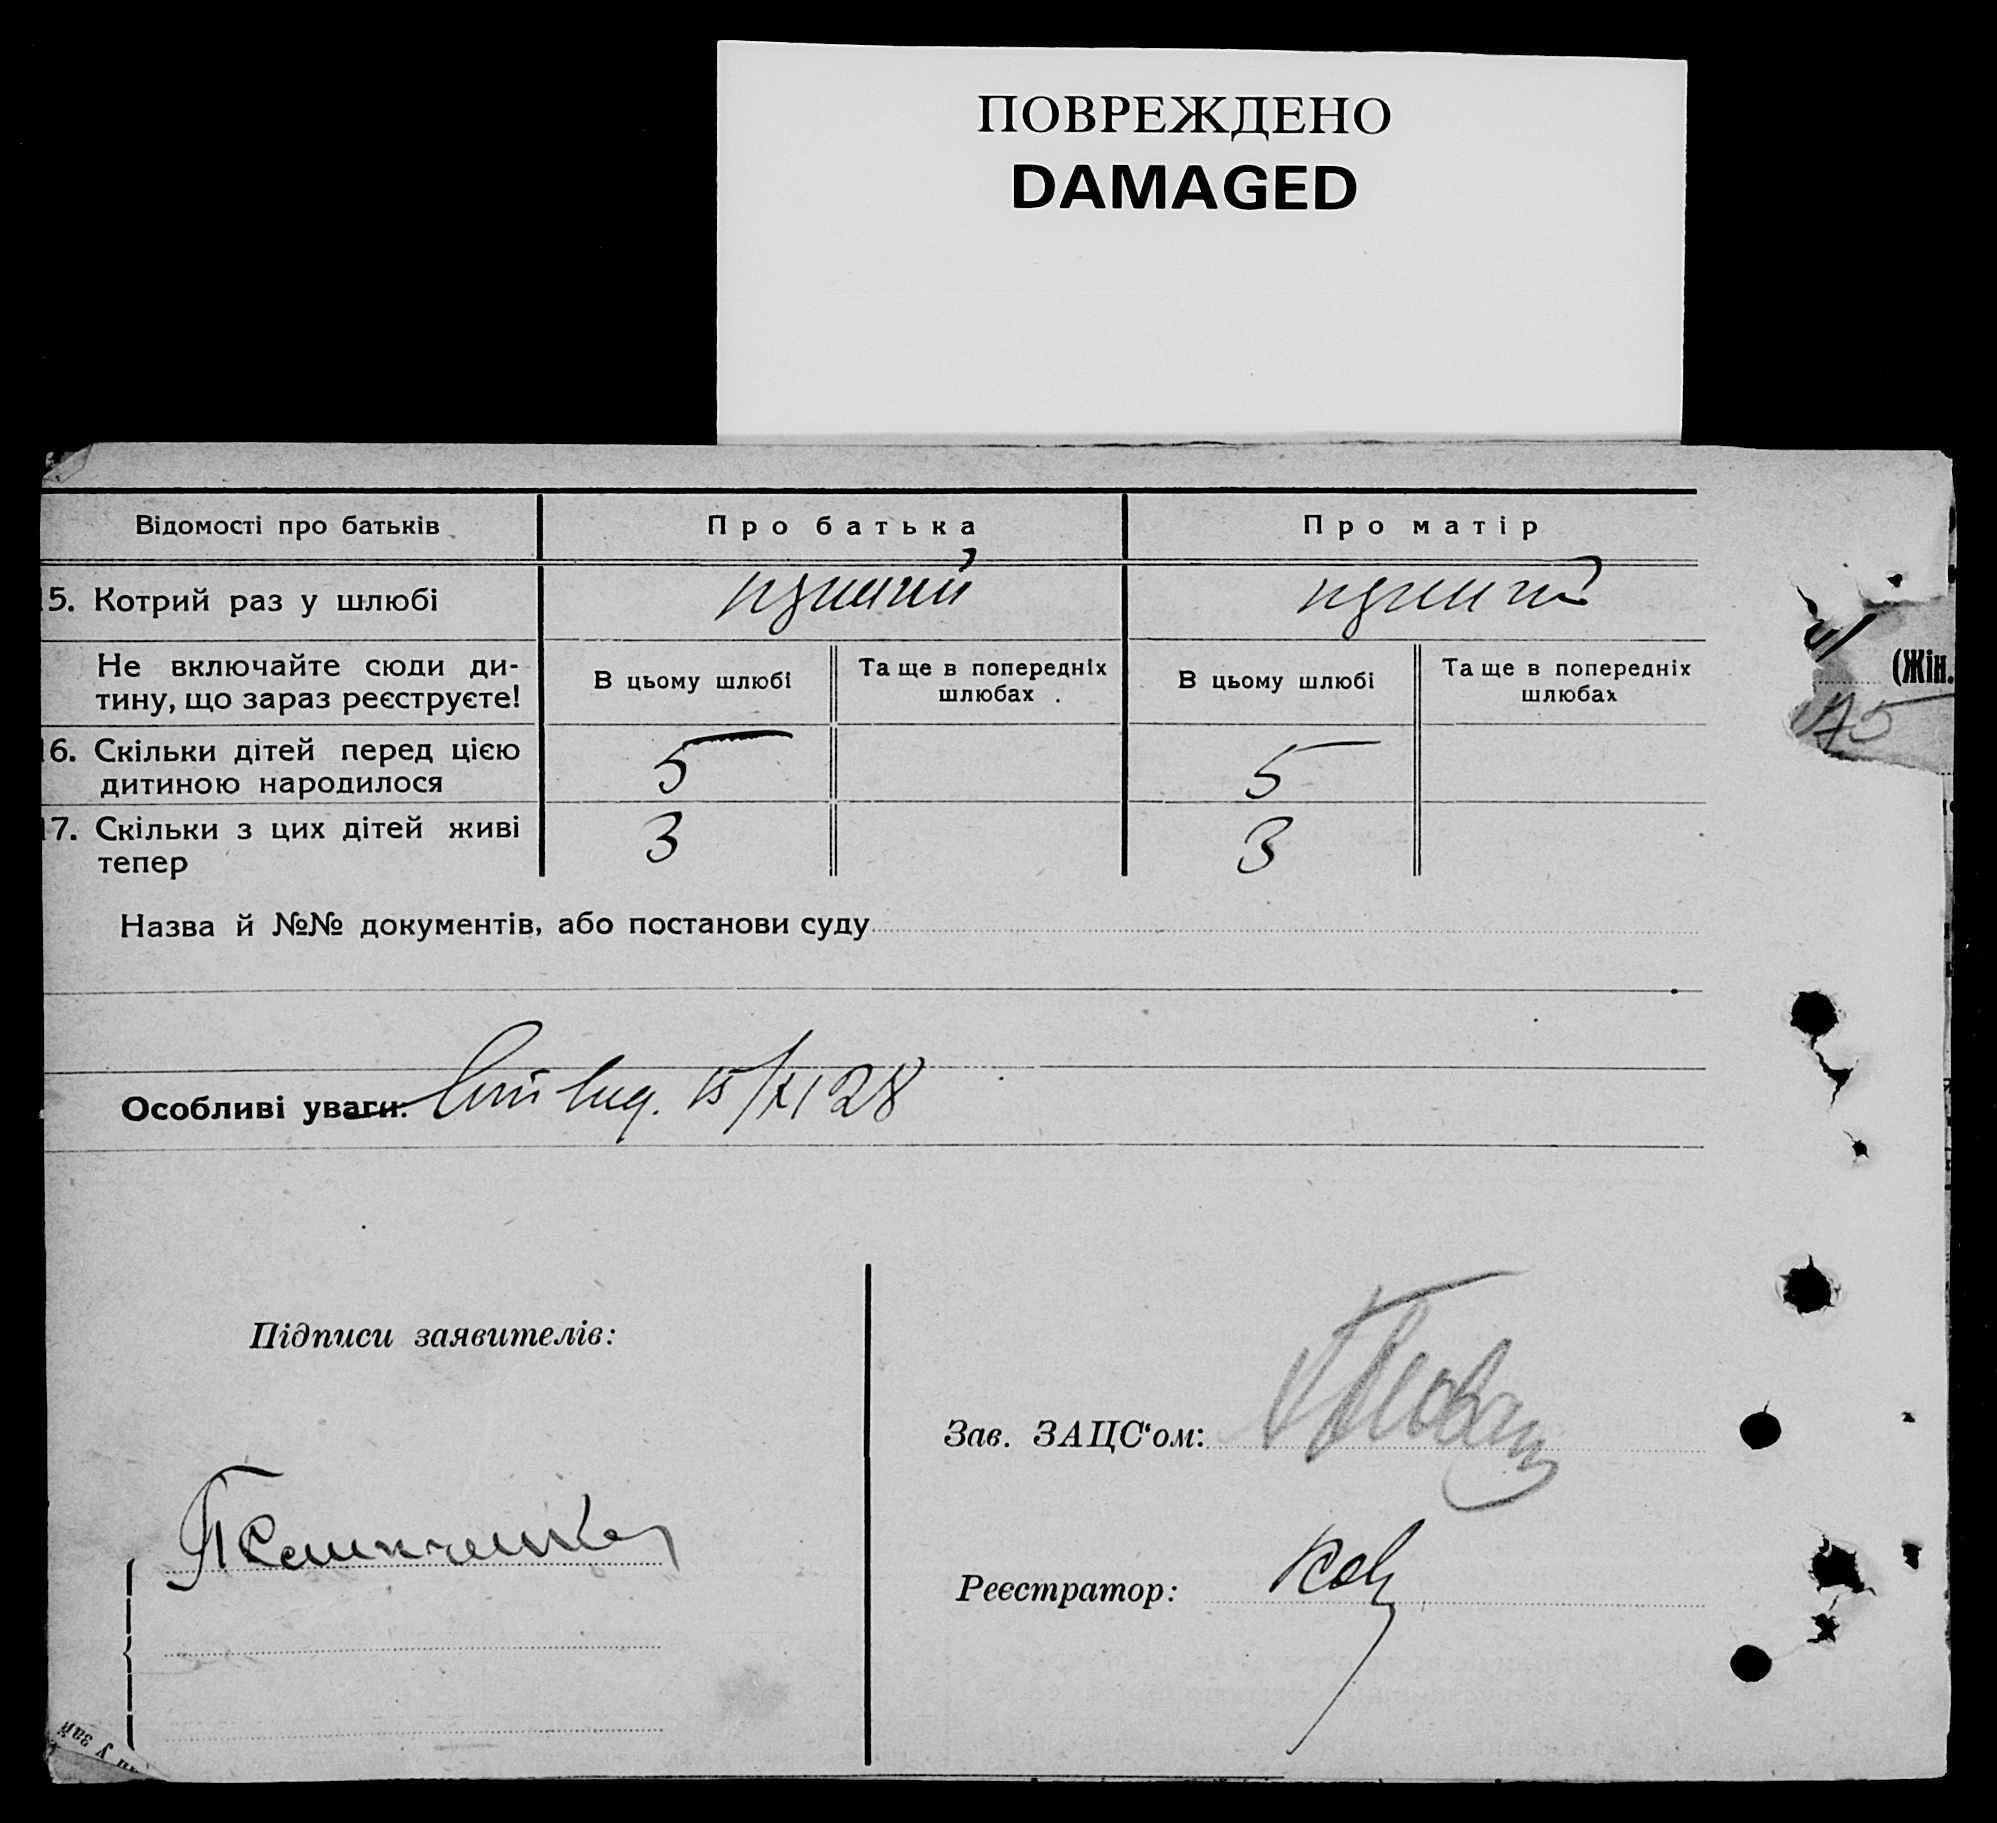 ПОВРЕЖДЕНО
DAMAGED
Відомості про батьків
Про батька
Про матір
15. Котрий раз у шлюбі
перший
перший
Не включайте сюди ди-
тину, що зараз реєструєте!
В цьому шлюбі
Та ще в попередніх
шлюбах
В цьому шлюбі
Та ще в попередніх
шлюбах
(Жін.
16. Скільки дітей перед цією
дитиною народилося
5
5
17. Скільки з цих дітей живі
тепер
3
3
Назва й №№ документів, або постанови суду
Особливі уваги: вид. 15/XI 28
Підписи заявителів:
Зав. ЗАЦС‘ом:
Реєстратор:
у зай